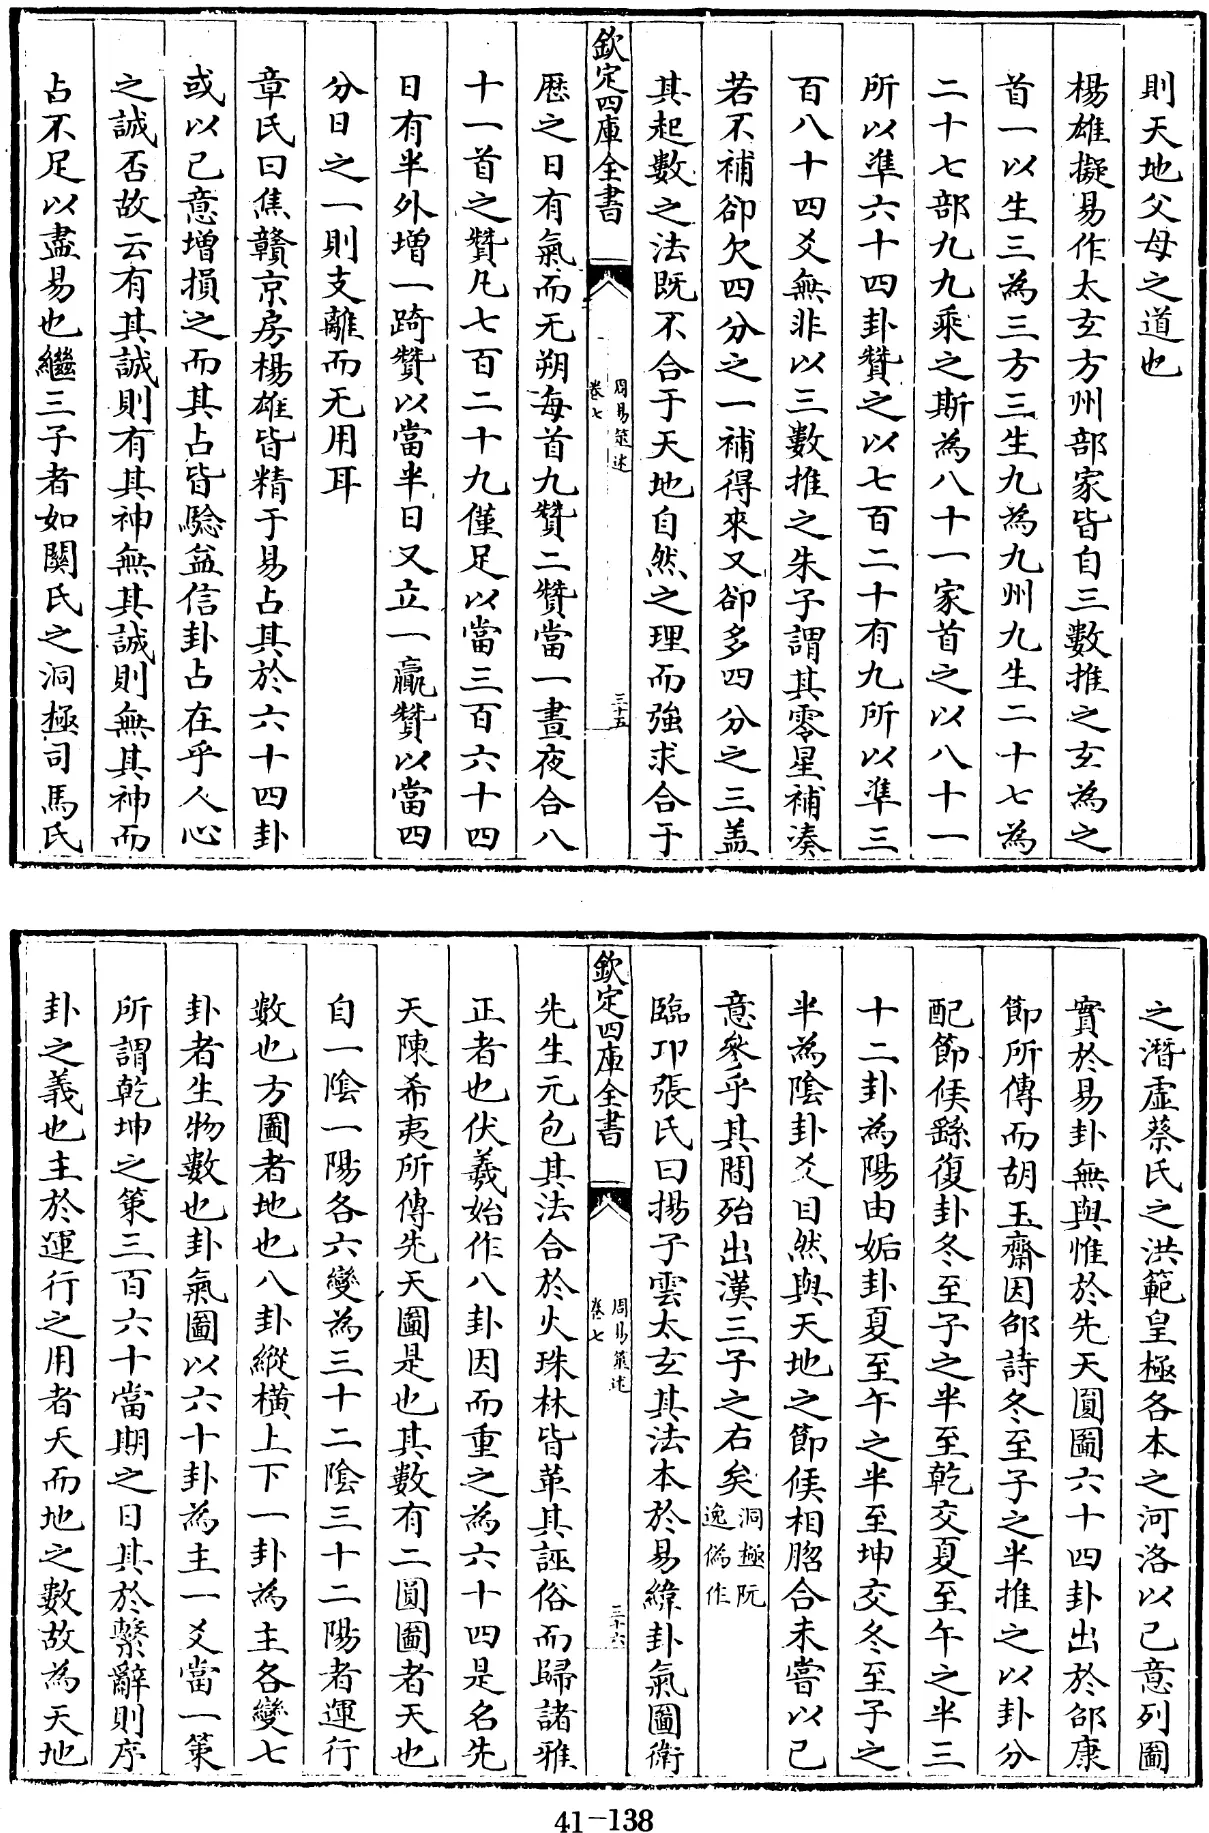 則天地父母之道也
楊雄擬易作太玄方州部家皆自三數推之玄為之
首一以生三為三方三生九為九州九生二十七為
二十七部九九乘之斯為八十一家首之以八十一
所以準六十四卦贊之以七百二十有九所以準三
百八十四爻無非以三數推之朱子謂其零星補湊
若不補卻欠四分之一補得來又卻多四分之三盖
其起數之法既不合于天地自然之理而強求合于
欽定四庫全書
周易筮述
卷七
三十五
厯之日有氣而无朔每首九贊二贊當一晝夜合八
十一首之贊凡七百二十九僅足以當三百六十四
日有半外增一踦贊以當半日又立一羸贊以當四
分日之一則支離而无用耳
章氏曰焦贛京房楊雄皆精于易占其於六十四卦
或以己意增損之而其占皆騐益信卦占在乎人心
之誠否故云有其誠則有其神無其誠則無其神而
占不足以盡易也繼三子者如關氏之洞極司馬氏
之潛虛蔡氏之洪範皇極各本之河洛以己意列圖
實於易卦無與惟於先天圓圖六十四卦出於邵康
節所傳而胡玉齋因邵詩冬至子之半推之以卦分
配節候繇復卦冬至子之半至乾交夏至午之半三
十二卦為陽由姤卦夏至午之半至坤交冬至子之
半為陰卦爻自然與天地之節候相脗合未嘗以己
意參乎其間殆出漢三子之右矣洞極阮
逸偽作
臨卭張氏曰揚子雲太玄其法本於易緯卦氣圖衛
欽定四庫全書
周易筮述
卷七
三十六
先生元包其法合於火珠林皆革其誣俗而歸諸雅
正者也伏羲始作八卦因而重之為六十四是名先
天陳希夷所傳先天圖是也其數有二圓圖者天也
自一陰一陽各六變為三十二陰三十二陽者運行
數也方圖者地也八卦縱橫上下一卦為主各變七
卦者生物數也卦氣圖以六十卦為主一爻當一策
所謂乾坤之策三百六十當期之日其於繫辭則序
卦之義也主於運行之用者天而地之數故為天地
41-138